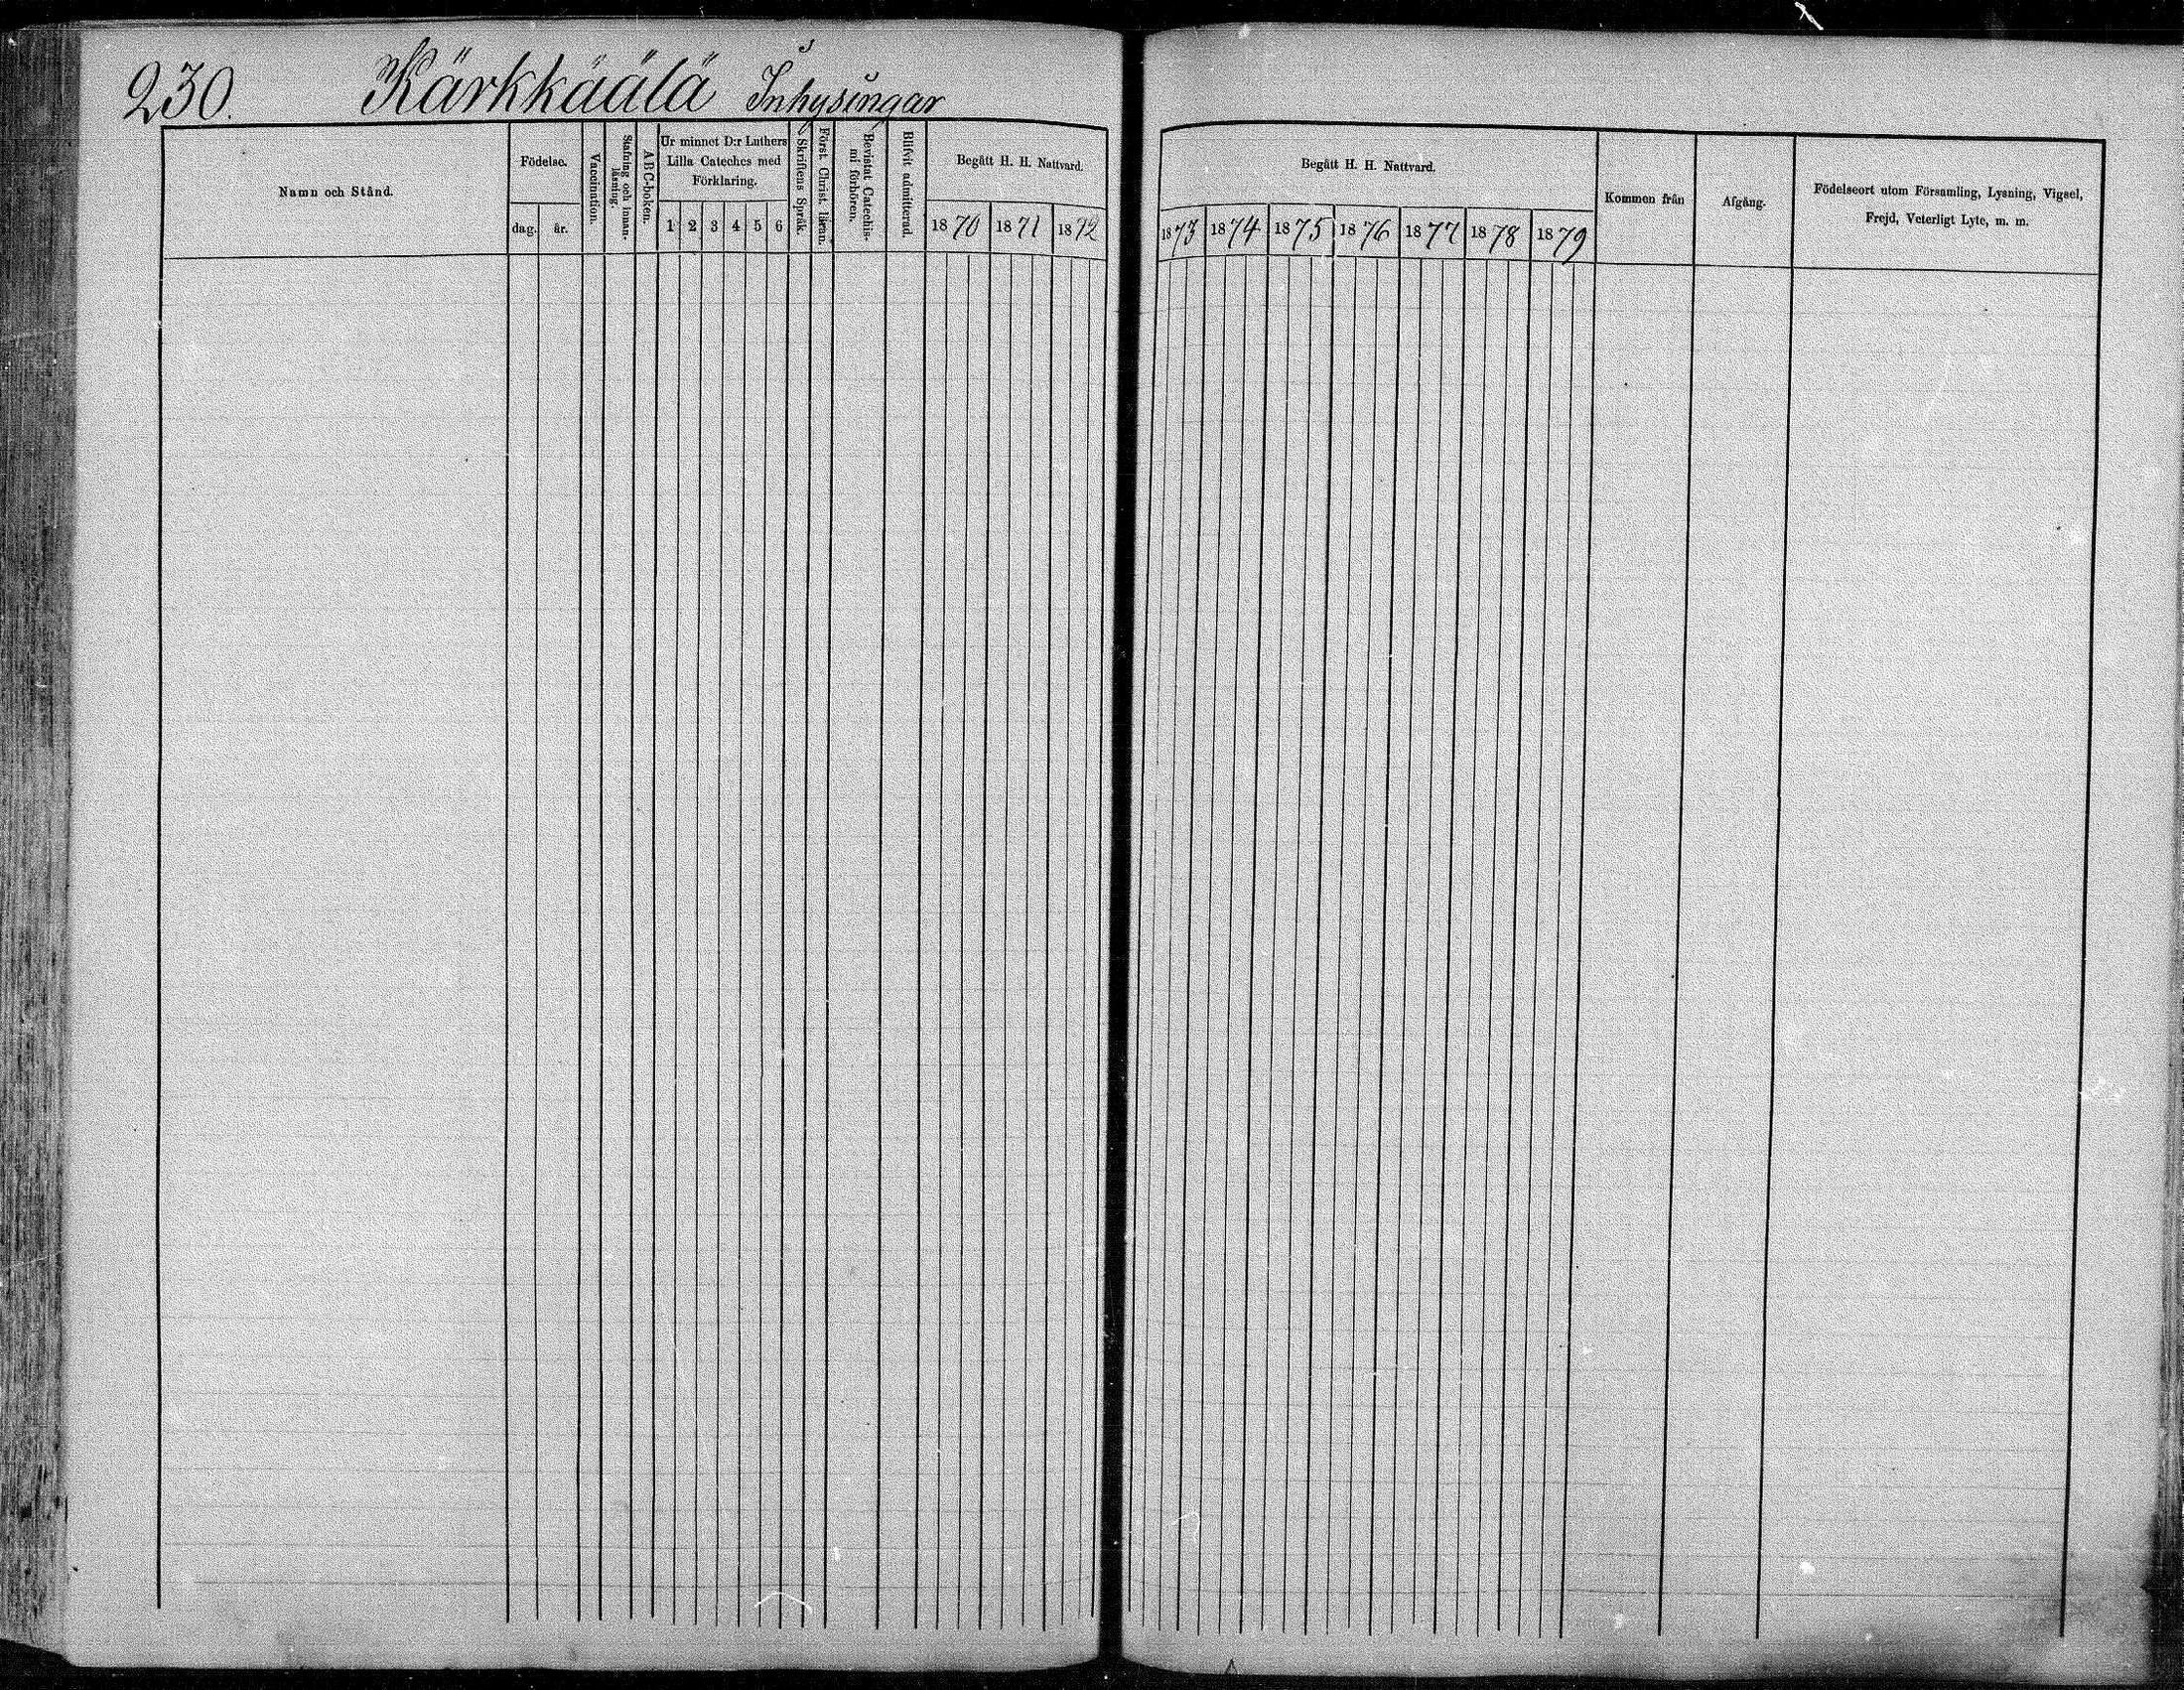 230. Kärkkäälä Inhysingar
Namn och Stånd.
Födelse.
dag. år.
Vaccination.
Stafning och innan-
läsning.
ABC-boken.
Ur minnet D:r Luthers
Lilla Cateches med
Förklaring.
1 2 3 4 5 6
Skriftens Språk.
Först. Christ. läran.
Bevistat Catechis-
mi förhören.
Blifvit admitterad.
Begått H. H. Nattvard.
1870 1871 1872
Begått H. H. Nattvard.
1873 1874 1875 1876 1877 1878 1879
Kommen från
Afgång.
Födelseort utom Församling, Lysning, Vigsel,
Frejd, Veterligt Lyte, m. m.